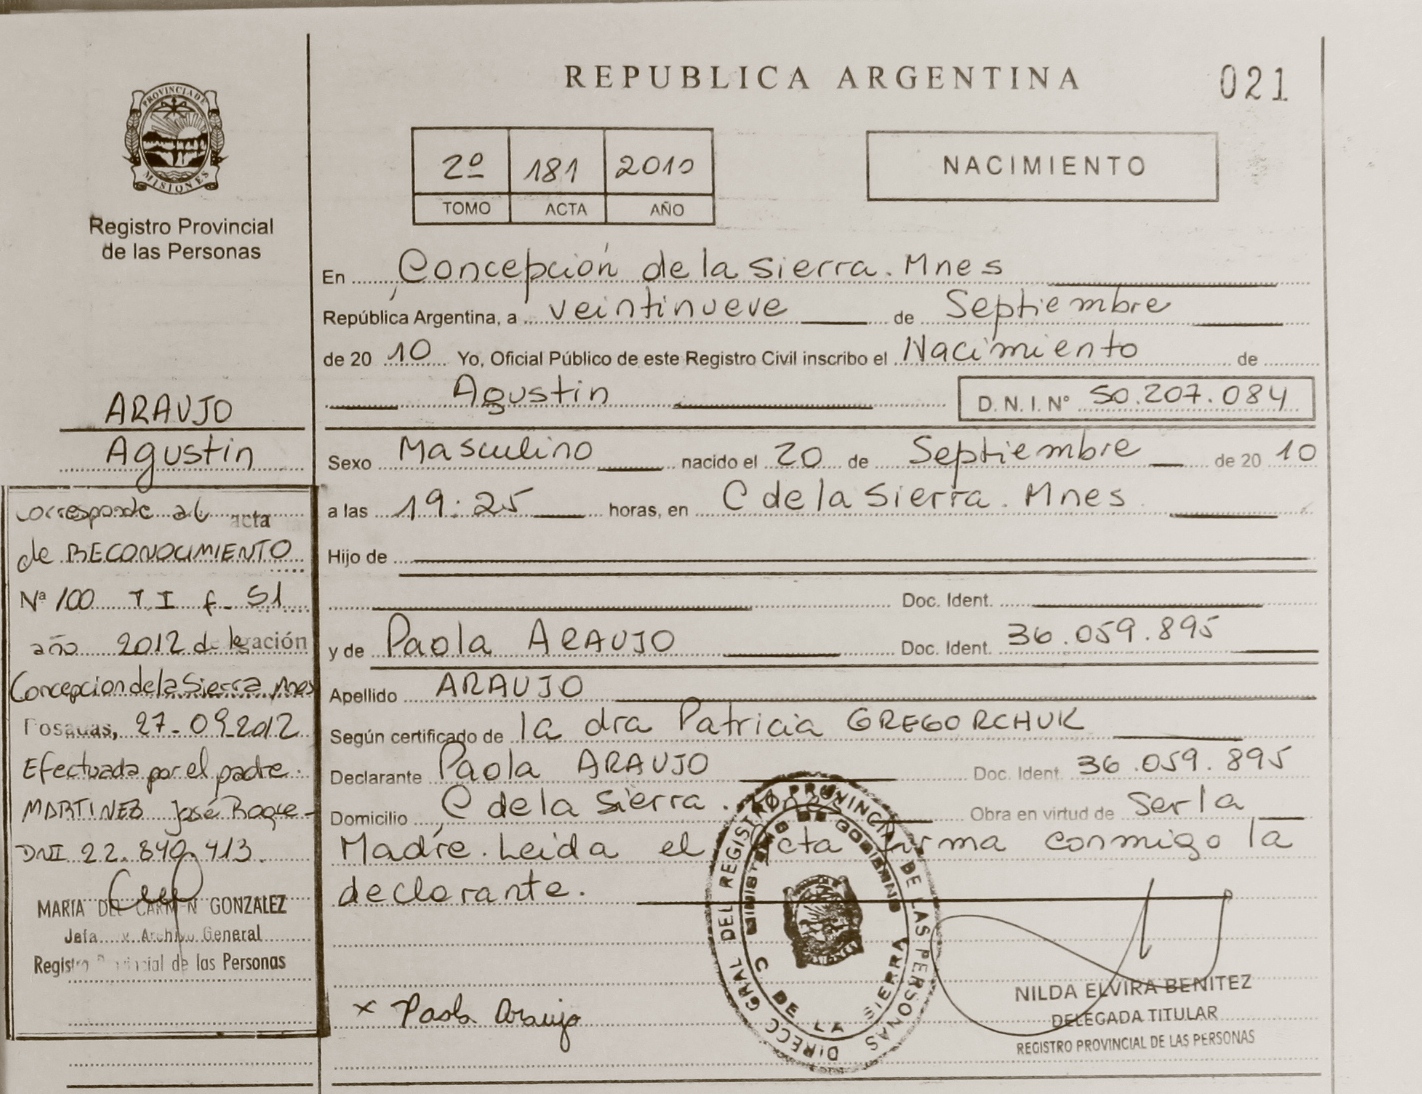 REPUBLICA ARGENTINA
021
PROVINCIA DE
MISIONES
Registro Provincial
de las Personas
2º 181 2010
TOMO ACTA AÑO
NACIMIENTO
En Concepción de la Sierra. Mnes
República Argentina, a veintinueve de Septiembre
de 2010 Yo, Oficial Público de este Registro Civil inscribo el Nacimiento de
Agustin D.N.I.Nº 50.207.084
Sexo Masculino nacido el 20 de Septiembre de 2010
a las 19:25 horas, en C de la Sierra. Mnes
Hijo de
Doc. Ident.
y de Paola ARAUJO Doc. Ident. 36.059.895
Apellido ARAUJO
Según certificado de la dra Patricia GREGORCHUK
Declarante Paola ARAUJO Doc. Ident. 36.059.895
Domicilio C de la Sierra. Mnes Obra en virtud de Ser la
Madre. Leida el Acta firma conmigo la
declarante.
x Paola Araujo
DIRECC GRAL DEL REGISTRO PROVINCIAL DE LAS PERSONAS
MINISTERIO DE GOBIERNO
C DE LA SIERRA
NILDA ELVIRA BENITEZ
DELEGADA TITULAR
REGISTRO PROVINCIAL DE LAS PERSONAS
ARAUJO
Agustin
corresponde al acta
de RECONOCIMIENTO
Nª 100 T I f. 51
año 2012 delegación
Concepcion de la Sierra Mnes
Posadas, 27-09-2012
Efectuada por el padre:
MARTINEZ José Roque-
DNI 22.840.413.
MARIA DEL CARMEN GONZALEZ
Jefa Archivo General
Registro Provincial de las Personas